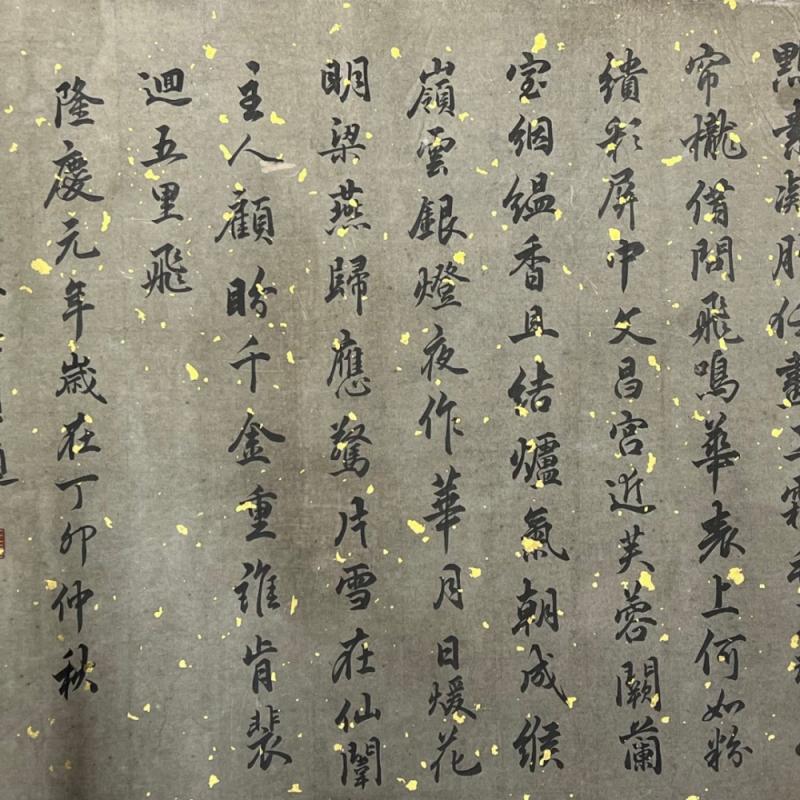 點素凝任畫工霜
帘櫳借問飛鳴華表上何如粉
繢彩屏中文昌宮近芙蓉闕蘭
宝絪緼香且結爐氣朝成緱
嶺雲銀燈夜作華月日煖花
明梁燕歸應驚片雪在仙闈
主人顧盼千金重誰肯裴
迴五里飛
隆慶元年歲在丁卯仲秋